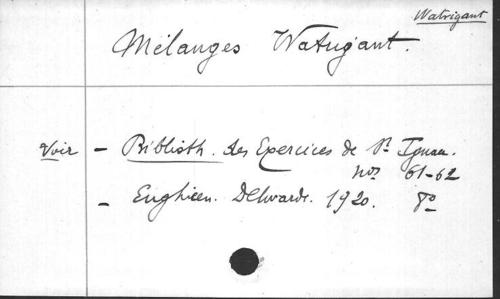 Watrigant
Mélanges Watrigant.
Voir - Biblioth. des Exercices de St Ignace.
nos 61-62
- Enghien. Dewarde. 1920. 8o